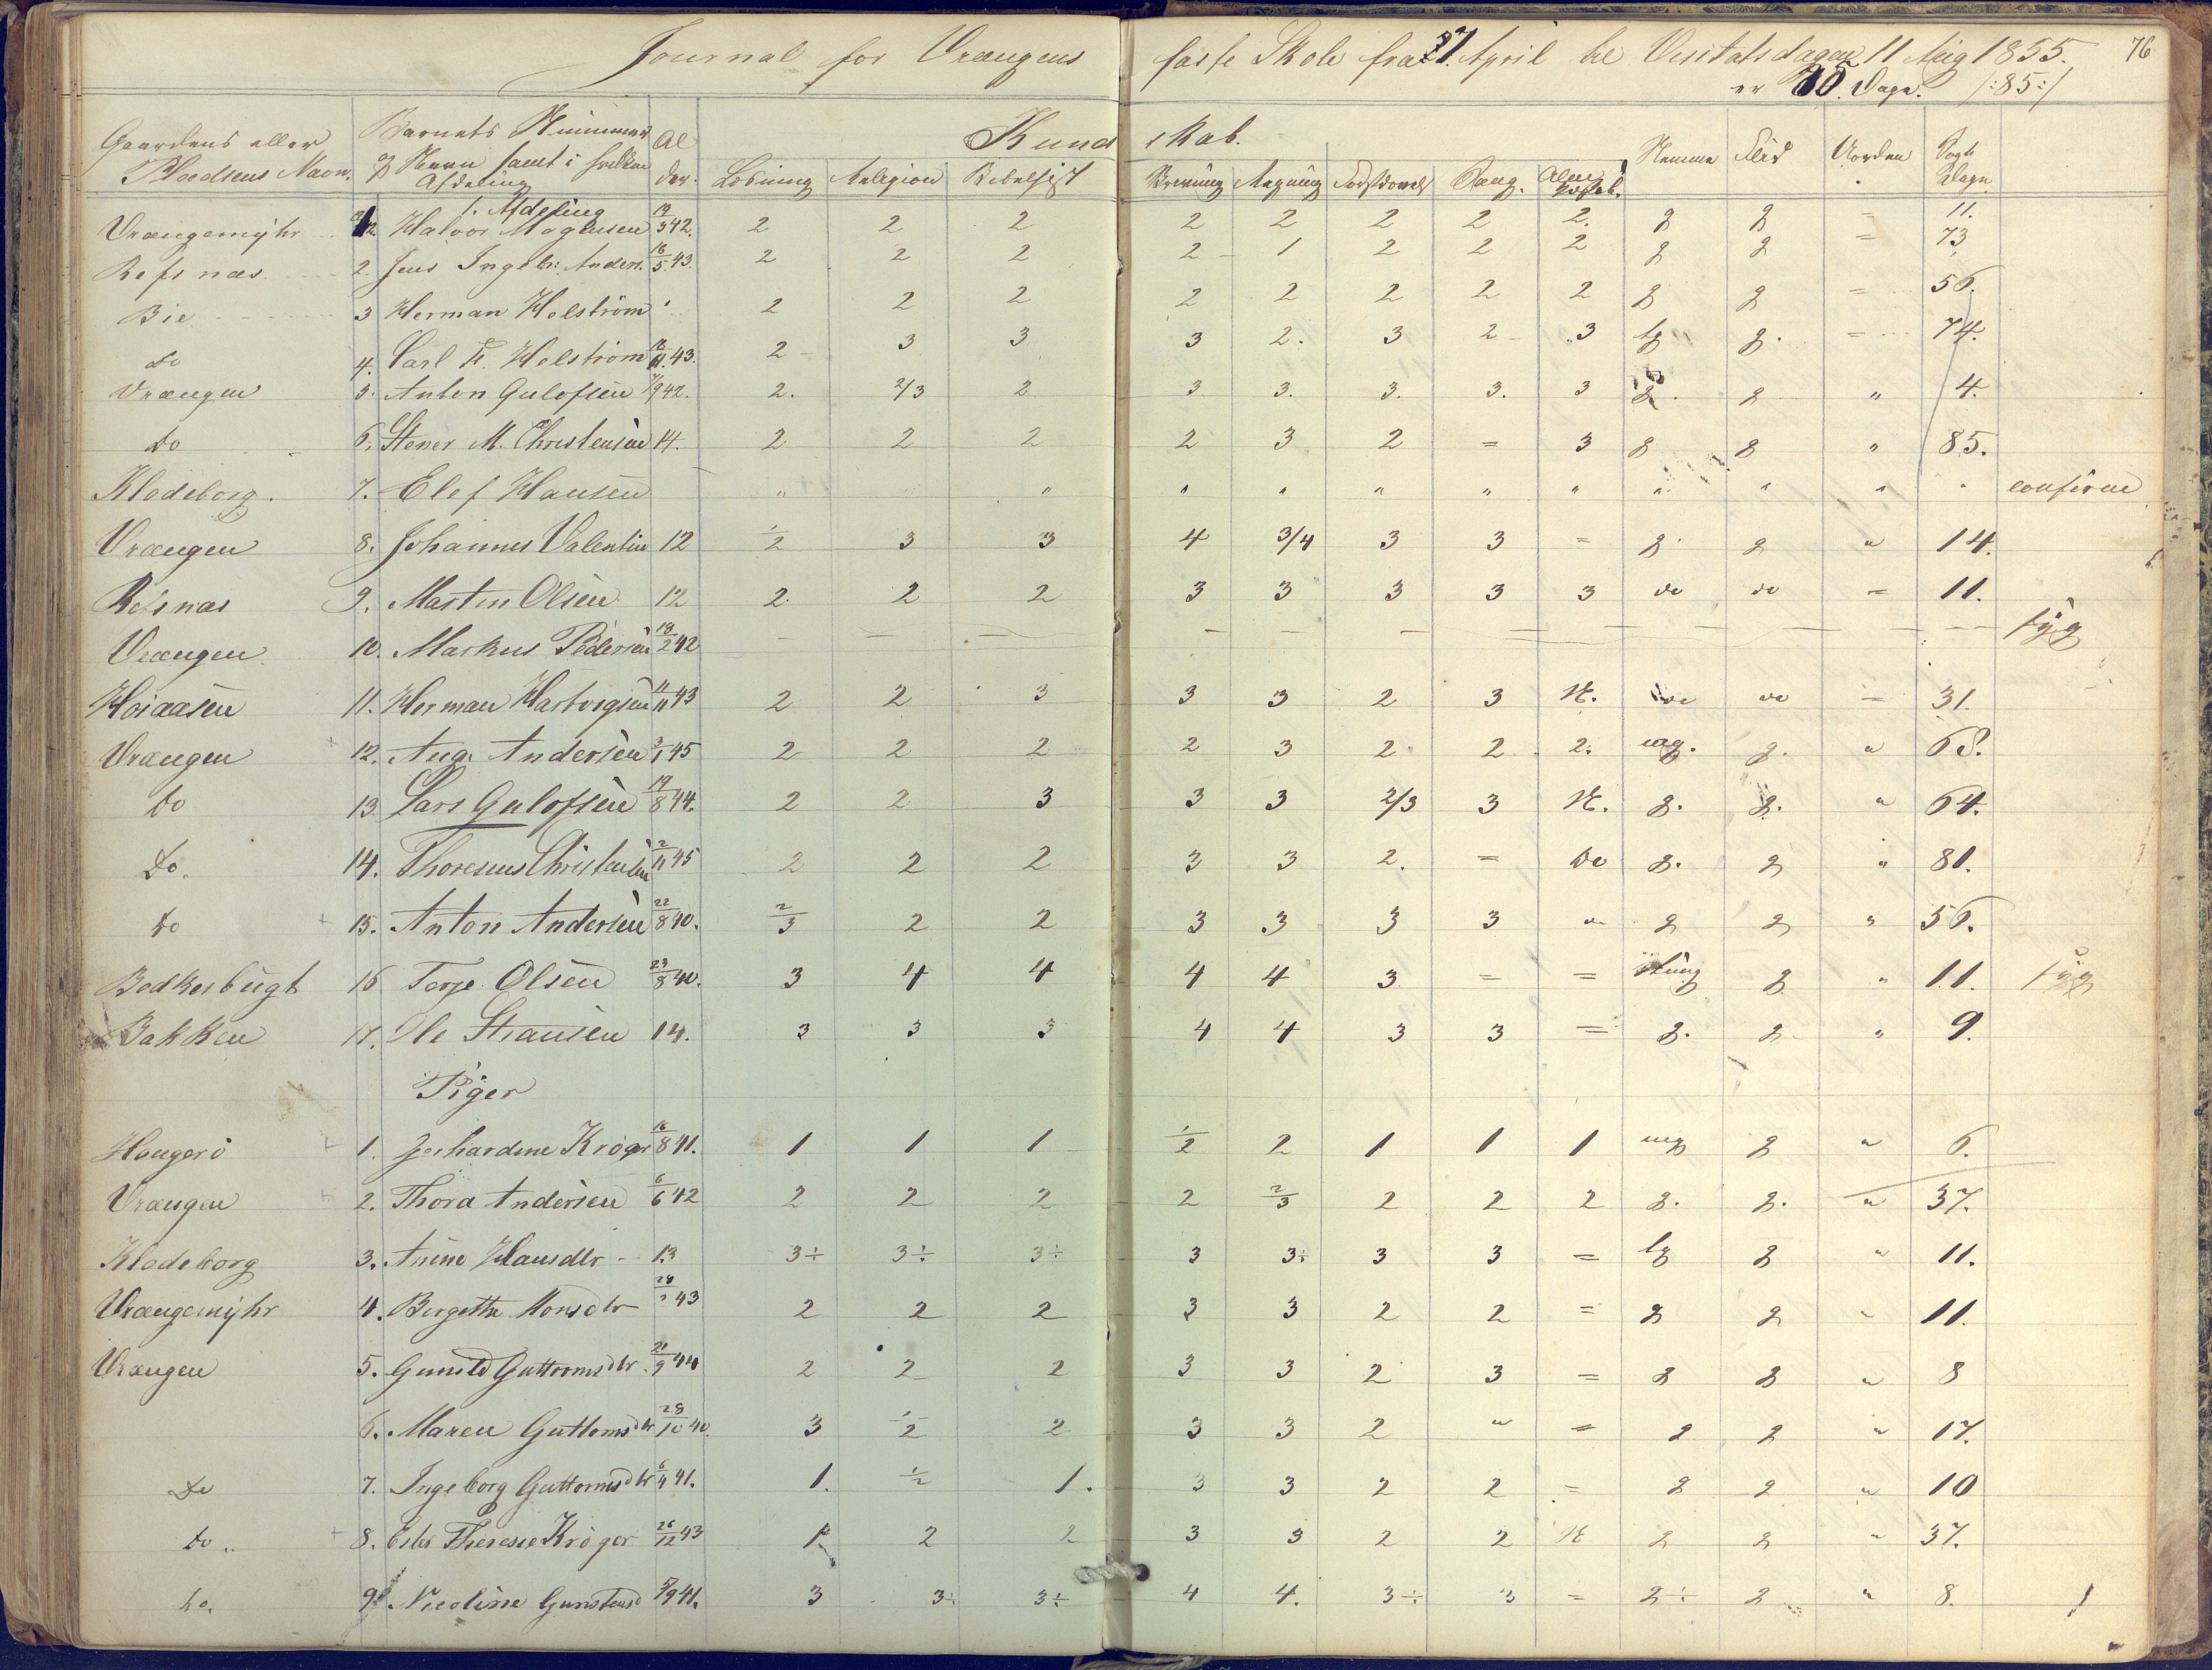 Journal for Vrængens faste Skole fra 27 April til Visitatsdagen 11 Aug 1855. 76
er 75. Dage. /:85:/
Gaardens eller Pladsens Navn. Barnets Nummer og Navn samt i hvilken Afdeling Alder. Kundskab. Nemme Flid Uorden Søgte Dage
Læsning Religion Bibelhist Skrivning Regning Forstand Sang.
1. Afdeling
Vrængemyhr 2. Halvor Magnusen 19/3 42. 2 2 2 2 2 2 2 2. g g = 11.
Refsnæs 2. Jens Ingebr: Anders. 16/5 43. 2 2 2 2 1 2 2 2 g g = 73
Bie 3 Herman Holstrøm 2 2 2 2 2 2 2 2 g g = 56.
do 4. Carl F. Holstrøm 16/11 43. 2 3 3 3 2. 3 2 3 tg g. = 74.
Vrængen 5. Anton Gulofsen 7/9 42. 2. 2/3 2 3 3. 3. 3. 3 g. g " 4.
do 6. Stener M. Christensen 14. 2 2 2 2 3 2 = 3 g g " 85.
Klodeborg. 7. Elef Hansen " " " " " " " " " " " confirme
Vrængen 8. Johannes Valentin 12 1/2 3 3 4 3/4 3 3 = g. g " 14.
Refsnæs 9. Martin Olsen 12 2 2 2 3 3 3 3 3 do do = 11.
Vrængen 10. Markus Pedersen 18/2 42 — — — — — — — — — — — — syg
Høiaasen 11. Herman Hartvigsen 11/11 43 2 2 3 3 3 2 3 N. do do = 31.
Vrængen 12. Aug. Andersen 3/1 45 2 2 2 2 3 2 2 2. mg. g. " 68.
do 13 Lars Gulofsen 19/8 44. 2 2 3 3 3 2/3 3 N. g. g. " 64.
do. 14. Thoresius Christensen 2/11 45 2 2 2 3 3 2. = do g. g " 81.
do 15. Anton Andersen 22/8 40. 2/3 2 2 3 3 3 3 " g g " 56.
Bødkerbugt 16 Terje Olsen 23/8 40. 3 4 4 4 4 3 = = tung g " 11. syg
Bakken 17. Ole Hansen 14. 3 3 3 4 4 3 3 = g. g " 9.
Piger
Haugerö 1. Gerhardine Kröger 16/8 41. 1 1 1 1/2 2 1 1 1 mg g " 6.
Vrængen 2. Thora Andersen 6/6 42 2 2 2 2 2/3 2 2 2 g. g. " 37.
Klodeborg 3. Anine Hansdtr 13 3÷ 3÷ 3÷ 3 3÷ 3 3 = tg g " 11.
Vrængemyhr 4. Bergette Monsdtr 43 2 2 2 3 3 2 2 = g g " 11.
Vrængen 5. Gunild Guttormsdtr 21/9 44 2 2 2 3 3 2 3 = g g " 8
6. Maren Guttomsdtr 28/10 40. 3 1/2 2 3 3 2 " = g g " 17.
do 7. Ingeborg Guttormsdtr 6/4 41. 1. 1/2 1. 3 3 2 2 = g g " 10
do 8. Theresie Kröger 26/12 43 1 2 2 3 3 2 2 N g g " 37.
do. 9. Nicoline Gunstensd 5/9 41. 3 3÷ 3÷ 4 4. 3÷ 3 = g÷ g " 8.